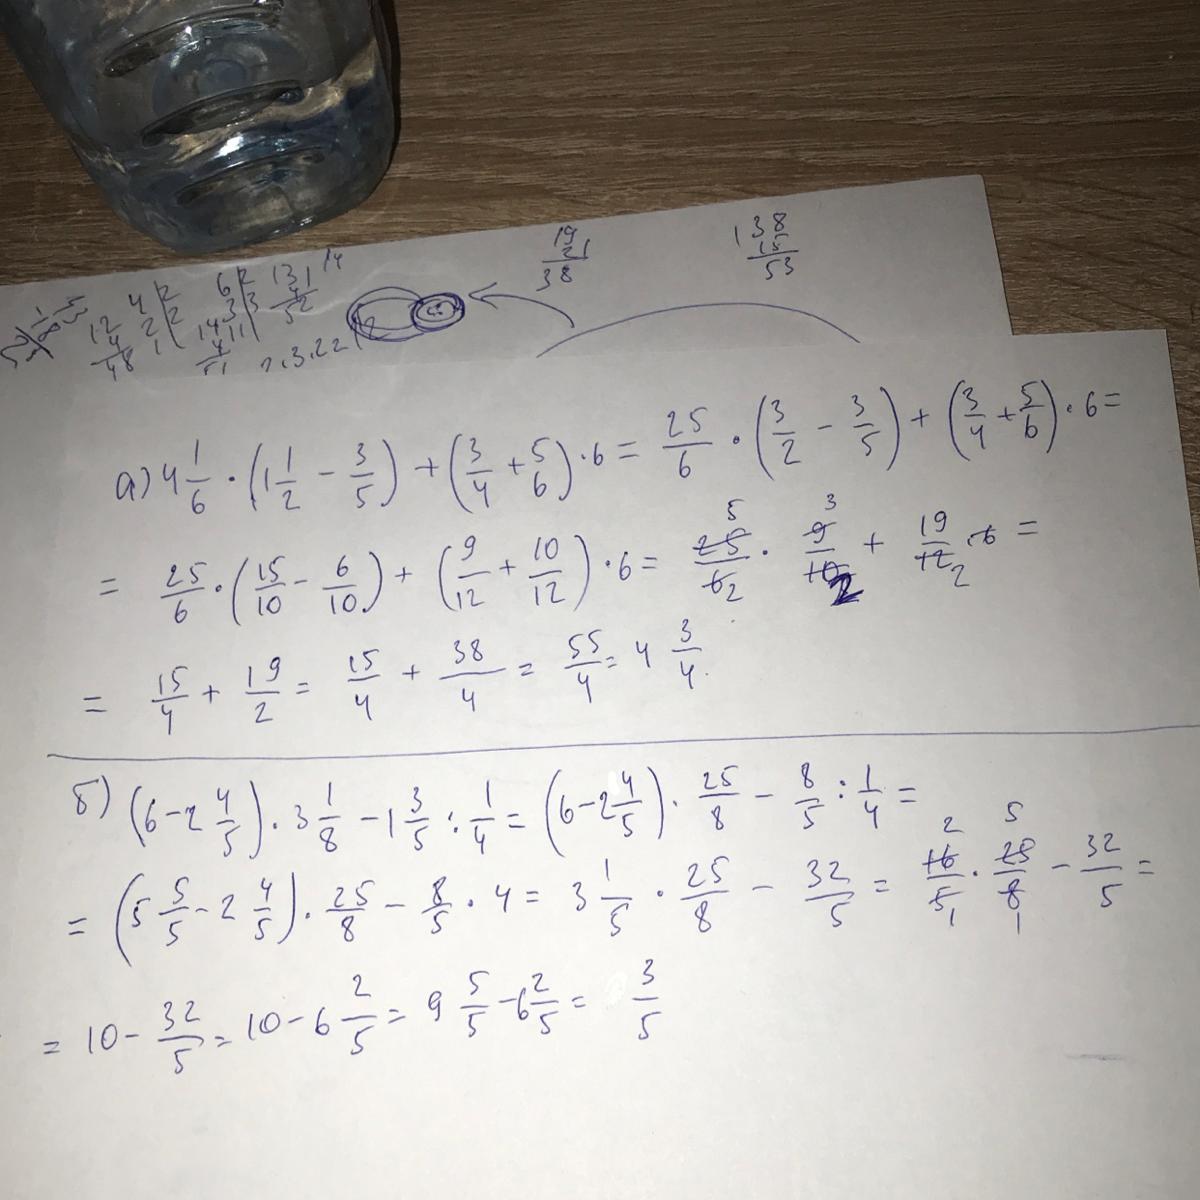 19
21
38
138
15
53
4 2
2 2
1
6 2
3 3
131
4
52
14
12
4
48
14 11
4
а) 4 1/6 · (1 1/2 − 3/5) + (3/4 + 5/6) · 6 = 25/6 · (3/2 − 3/5) + (3/4 + 5/6) · 6 =
= 25/6 · (15/10 − 6/10) + (9/12 + 10/12) · 6 = 25 5/6 2 · 9 3/10 2 + 19/12 2 · 6 =
= 15/4 + 19/2 = 15/4 + 38/4 = 55/4 = 4 3/4.
б) (6 − 2 4/5) · 3 1/8 − 1 3/5 : 1/4 = (6 − 2 4/5) · 25/8 − 8/5 : 1/4 =
= (5 5/5 − 2 4/5) · 25/8 − 8/5 · 4 = 3 1/5 · 25/8 − 32/5 = 16 2/5 1 · 25 5/8 1 − 32/5 =
= 10 − 32/5 = 10 − 6 2/5 = 9 5/5 − 6 2/5 = 3/5